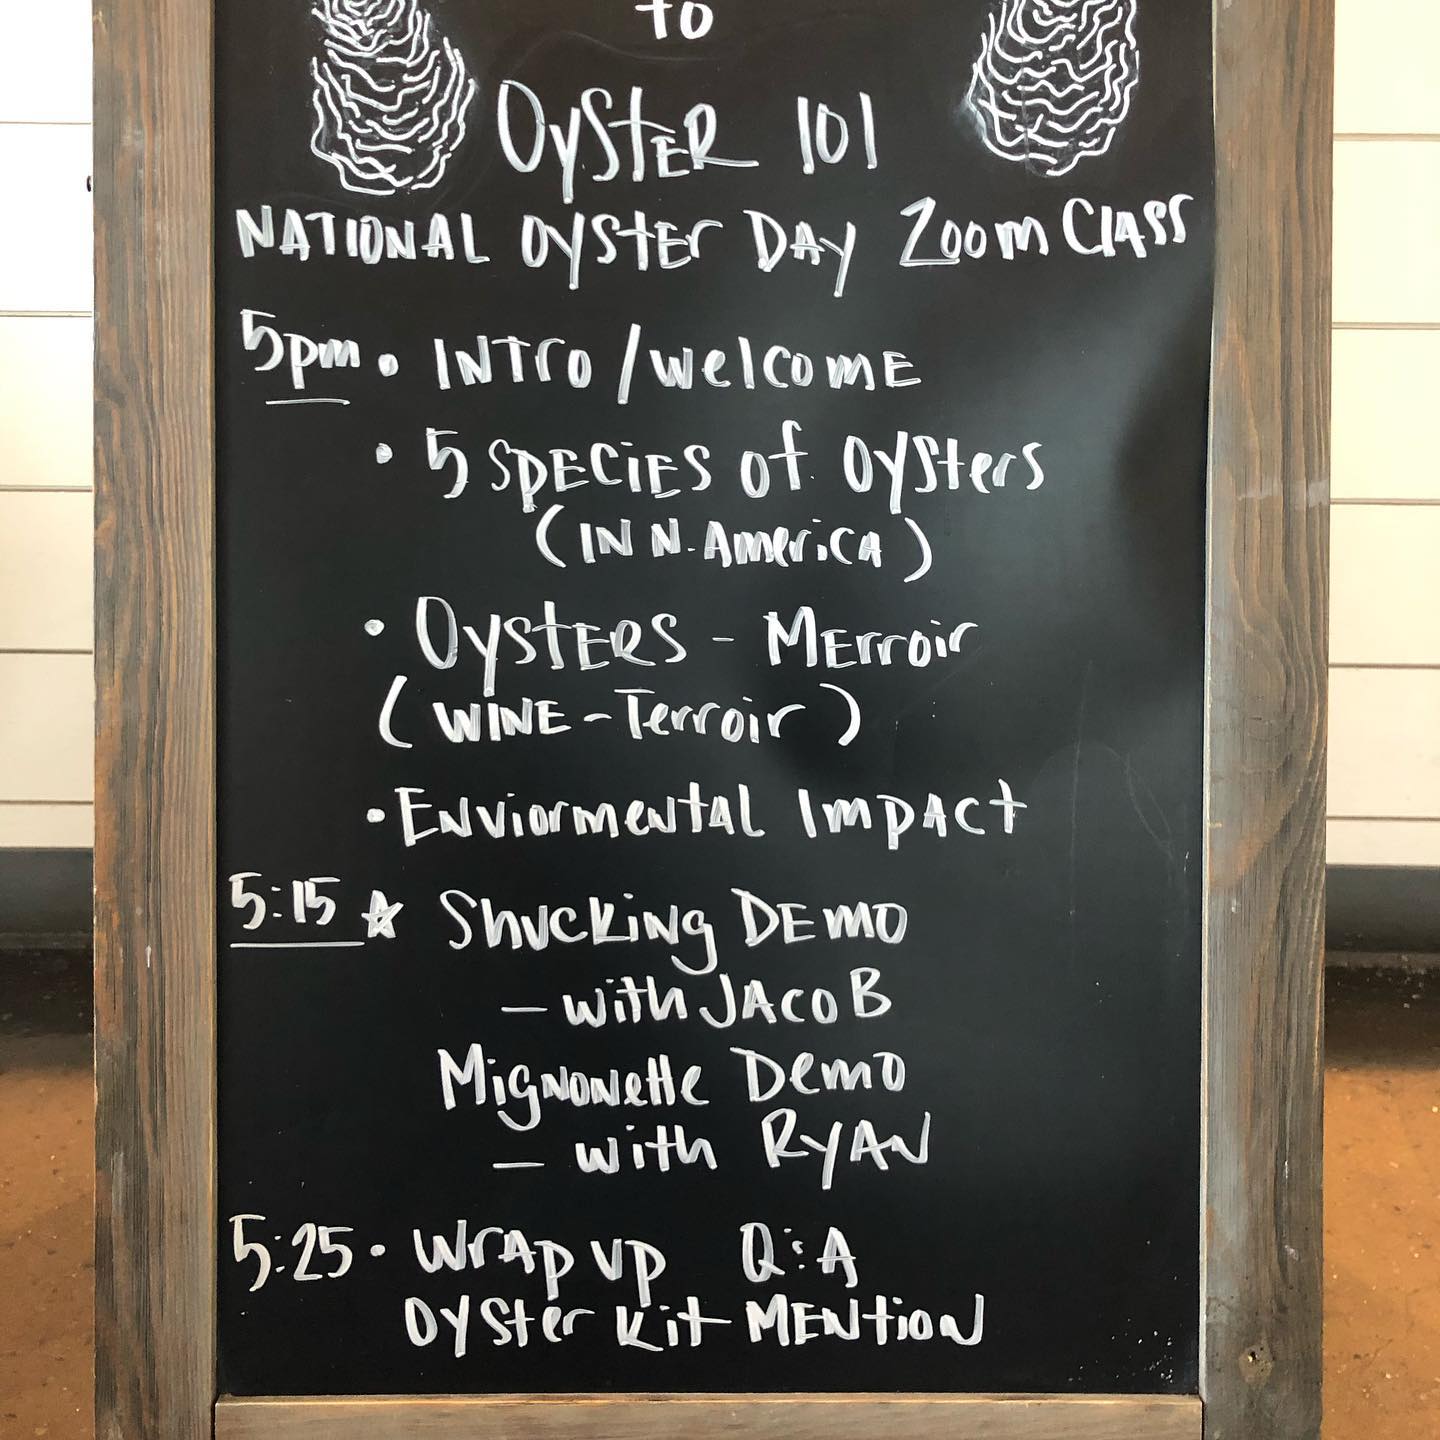 to
OYSTER 101
NATIONAL OYSTEr DAY Zoom ClASS
5pm • INTro / welcomE
• 5 SPECiES of OYSters
(IN N. AmericA)
• OYSTERS - MErroir
(WINE - Terroir)
• Enviormental ImpAct
5:15 ☆ Shucking DEMO
— with JACOB
Mignonette Demo
— with RYAN
5:25 • WrAp up Q:A
OYSter Kit MENtion